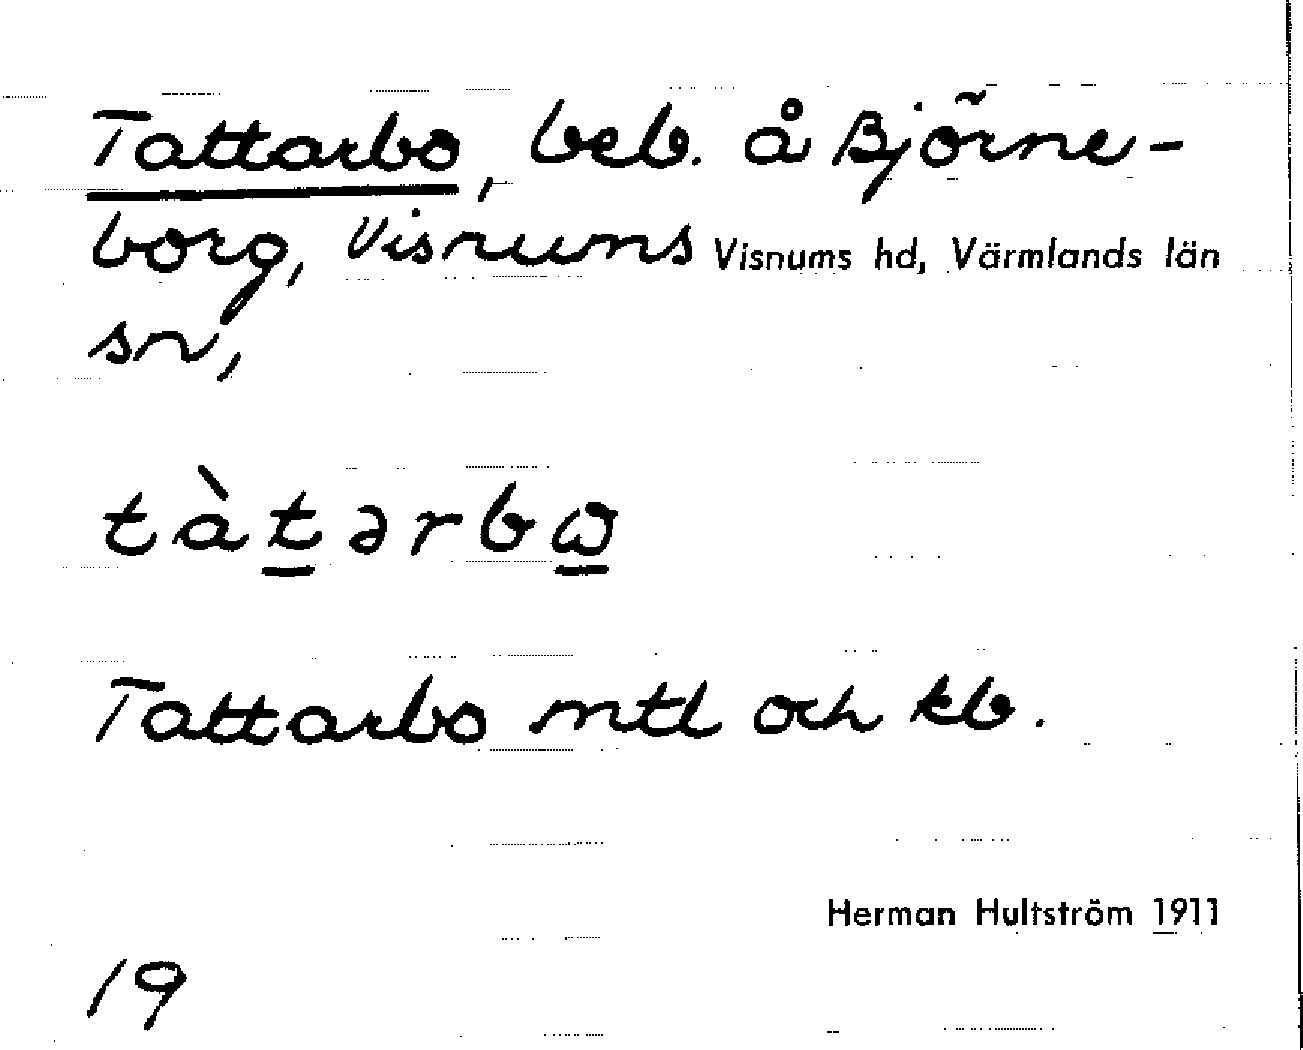 Tattarbo, beb. å Björne-
borg, Visnums Visnums hd, Värmlands län
sn,
tàt̲ərbω̲
Tattarbo mtl och kb.
Herman Hultström 1911
19